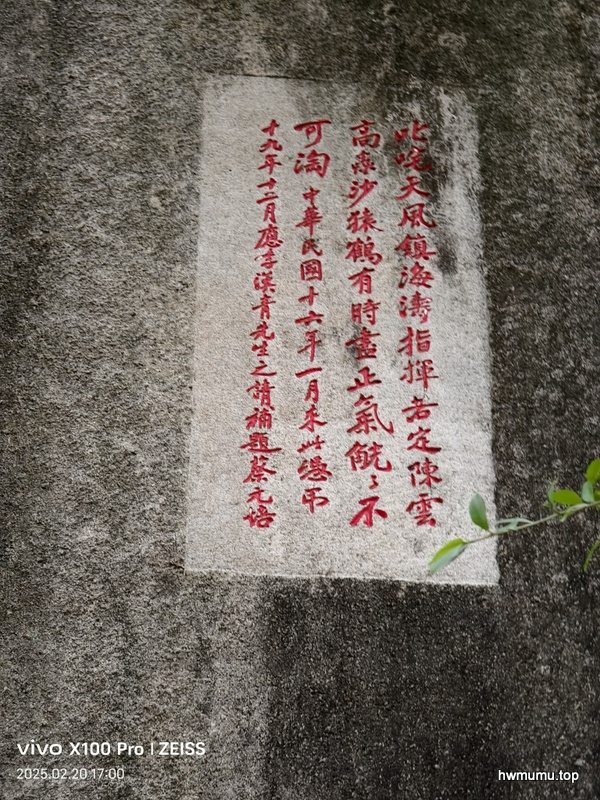 叱咤天風鎮海濤指揮若定陳雲
高虫沙猿鶴有時盡正氣觥〻不
可淘中華民國十六年一月來此憑弔
十九年十二月應李漢青先生之請補題蔡元培
vivo X100 Pro | ZEISS
2025.02.20 17:00
hwmumu.top